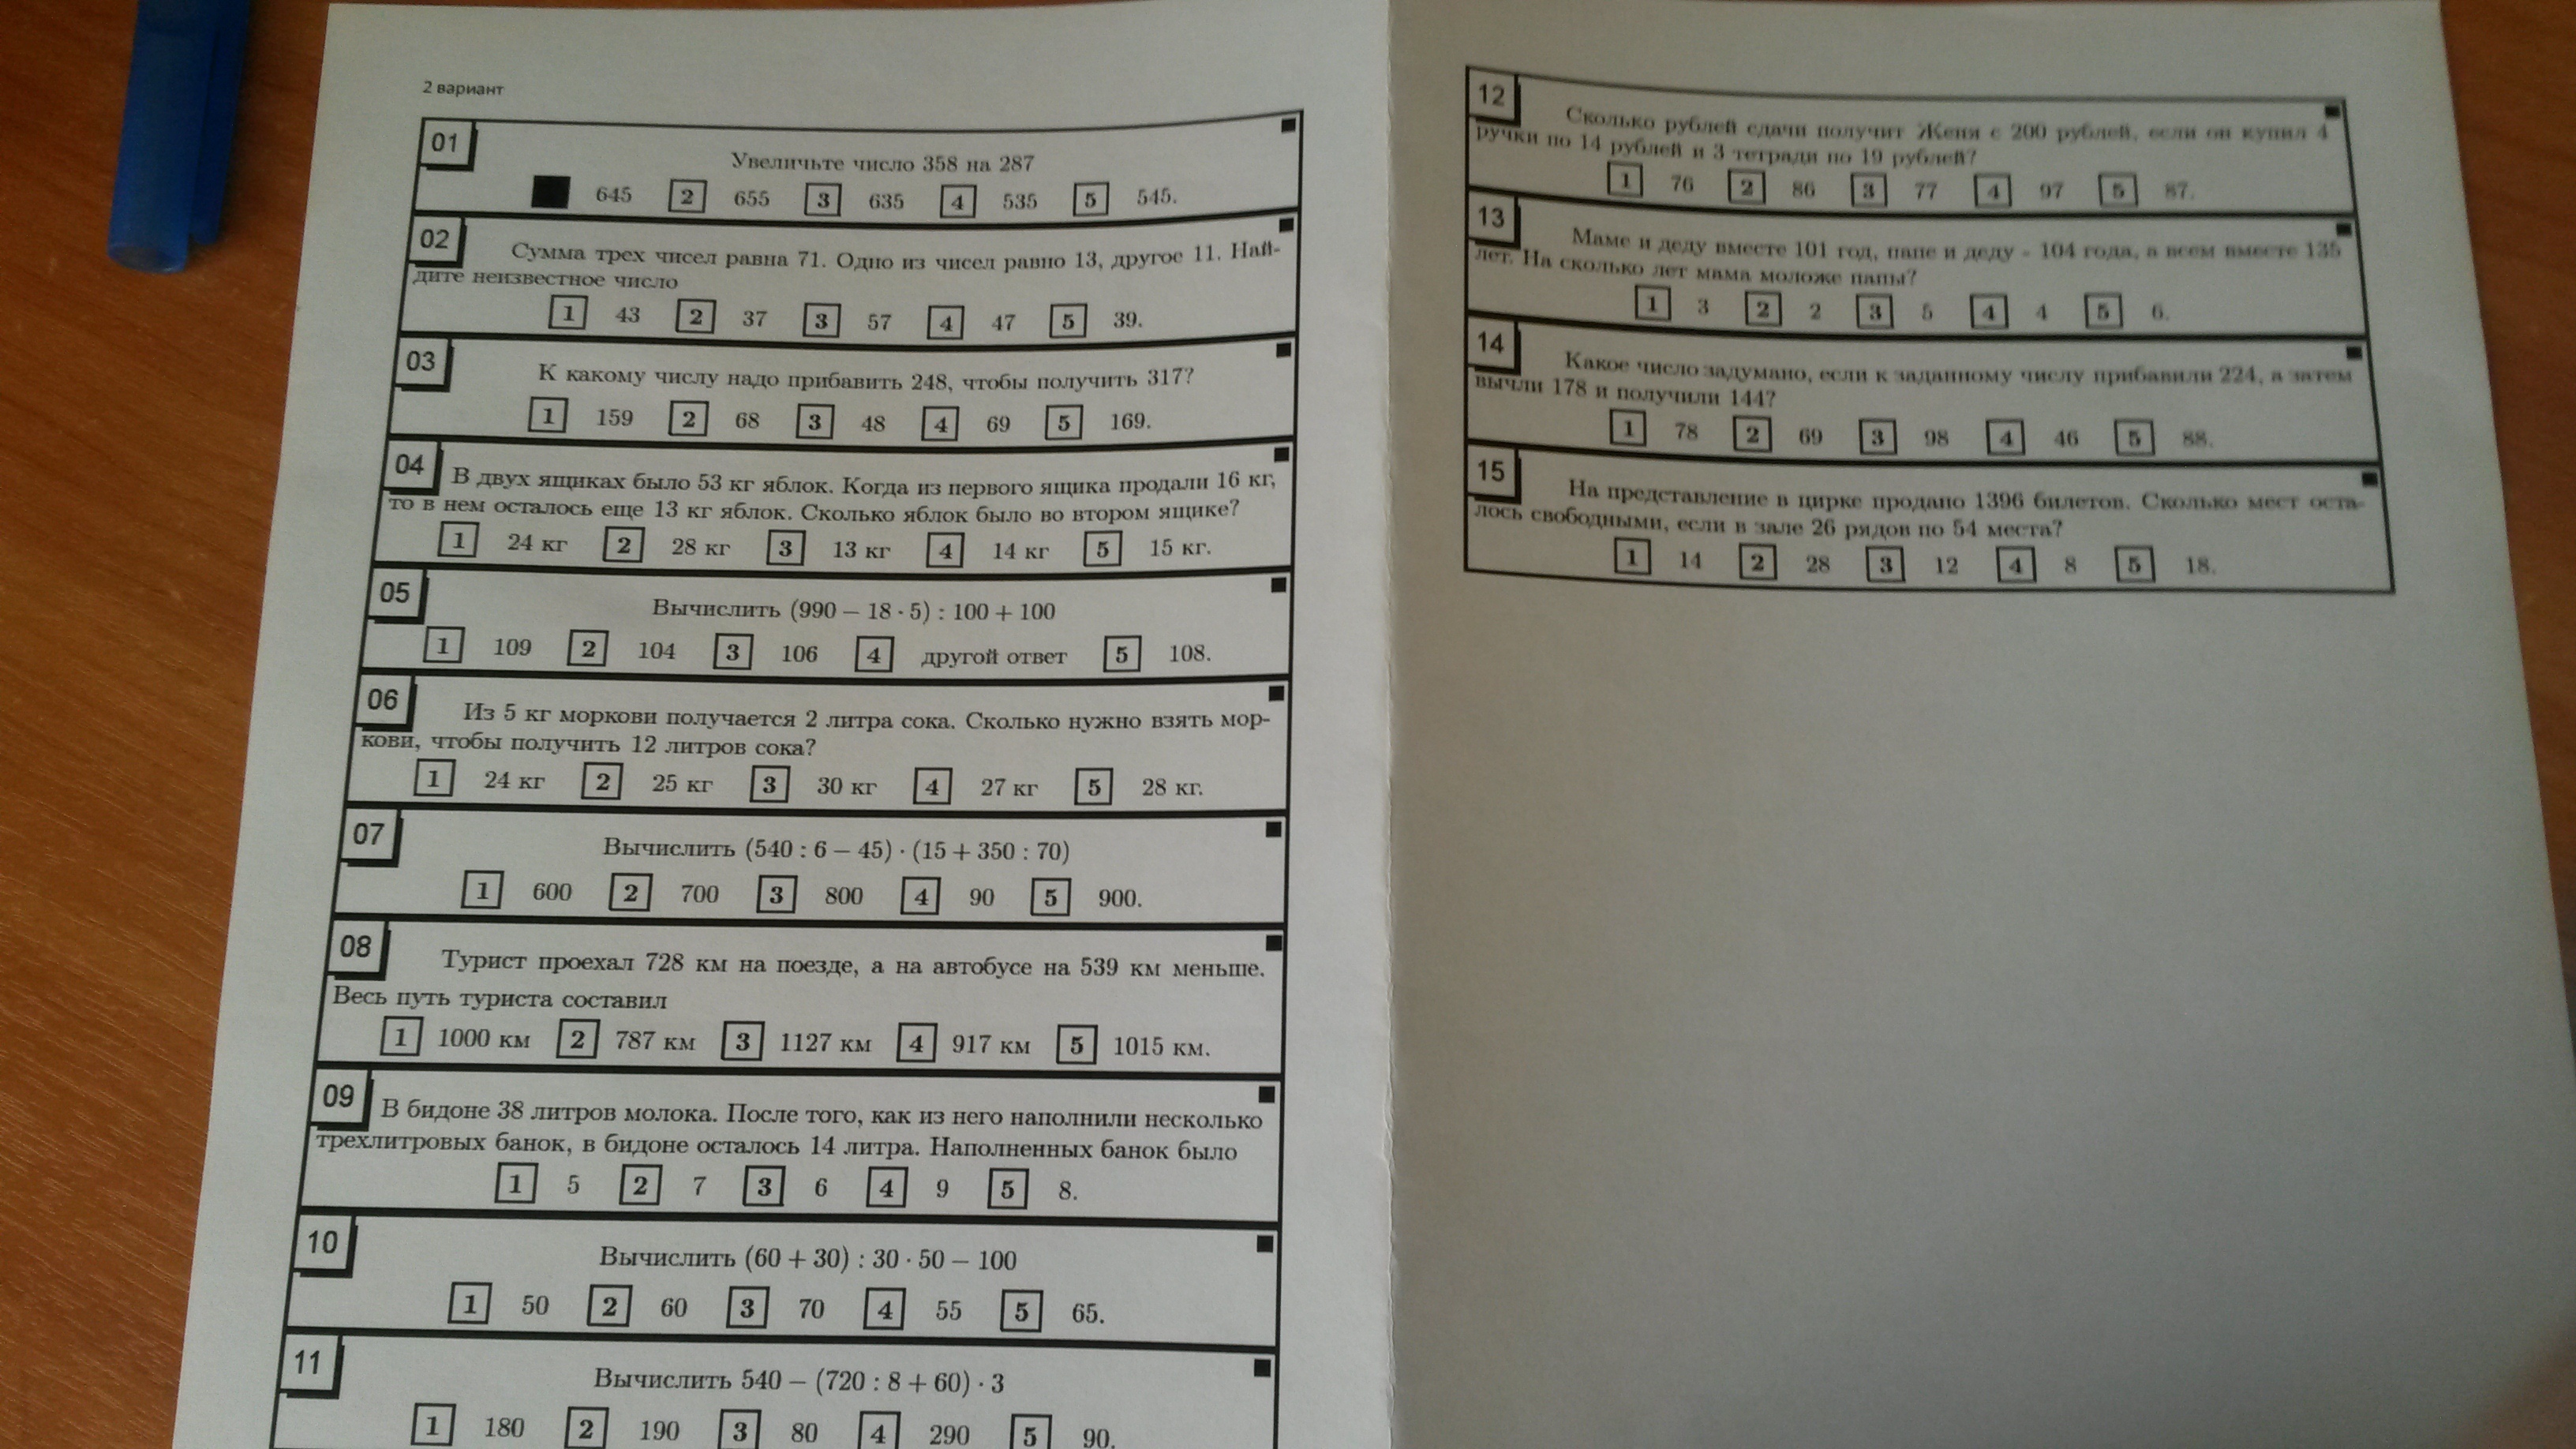 2 вариант
01
Увеличьте число 358 на 287
645 2 655 3 635 4 535 5 545.
02
Сумма трех чисел равна 71. Одно из чисел равно 13, другое 11. Най-
дите неизвестное число
1 43 2 37 3 57 4 47 5 39.
03
К какому числу надо прибавить 248, чтобы получить 317?
1 159 2 68 3 48 4 69 5 169.
04
В двух ящиках было 53 кг яблок. Когда из первого ящика продали 16 кг,
то в нем осталось еще 13 кг яблок. Сколько яблок было во втором ящике?
1 24 кг 2 28 кг 3 13 кг 4 14 кг 5 15 кг.
05
Вычислить (990 − 18 · 5) : 100 + 100
1 109 2 104 3 106 4 другой ответ 5 108.
06
Из 5 кг моркови получается 2 литра сока. Сколько нужно взять мор-
кови, чтобы получить 12 литров сока?
1 24 кг 2 25 кг 3 30 кг 4 27 кг 5 28 кг.
07
Вычислить (540 : 6 − 45) · (15 + 350 : 70)
1 600 2 700 3 800 4 90 5 900.
08
Турист проехал 728 км на поезде, а на автобусе на 539 км меньше.
Весь путь туриста составил
1 1000 км 2 787 км 3 1127 км 4 917 км 5 1015 км.
09
В бидоне 38 литров молока. После того, как из него наполнили несколько
трехлитровых банок, в бидоне осталось 14 литра. Наполненных банок было
1 5 2 7 3 6 4 9 5 8.
10
Вычислить (60 + 30) : 30 · 50 − 100
1 50 2 60 3 70 4 55 5 65.
11
Вычислить 540 − (720 : 8 + 60) · 3
1 180 2 190 3 80 4 290 5 90.
12
Сколько рублей сдачи получит Женя с 200 рублей, если он купил 4
ручки по 14 рублей и 3 тетради по 19 рублей?
1 76 2 86 3 77 4 97 5 87.
13
Маме и деду вместе 101 год, папе и деду - 104 года, а всем вместе 135
лет. На сколько лет мама моложе папы?
1 3 2 2 3 5 4 4 5 6.
14
Какое число задумано, если к заданному числу прибавили 224, а затем
вычли 178 и получили 144?
1 78 2 69 3 98 4 46 5 88.
15
На представление в цирке продано 1396 билетов. Сколько мест оста-
лось свободными, если в зале 26 рядов по 54 места?
1 14 2 28 3 12 4 8 5 18.